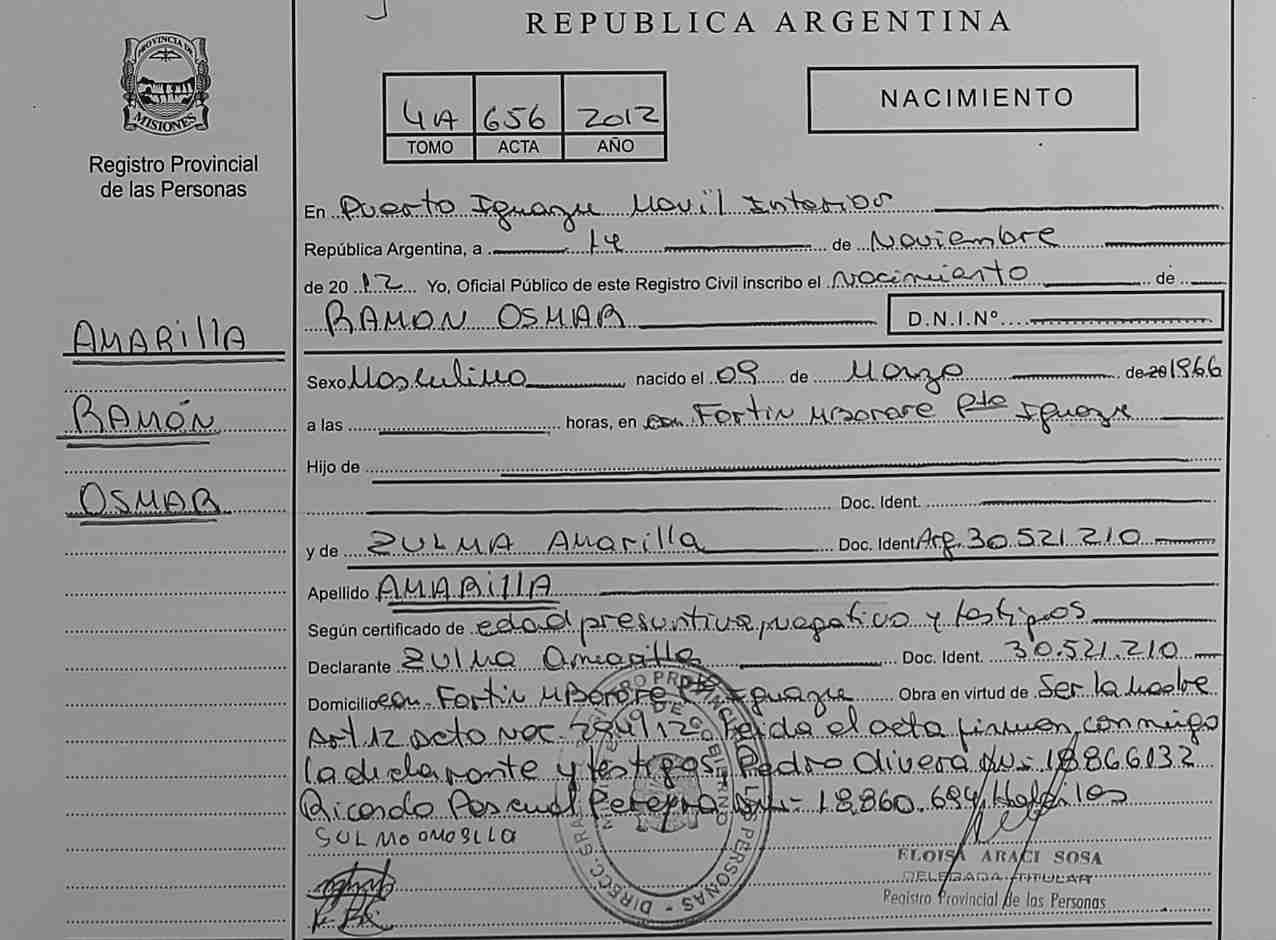 REPUBLICA ARGENTINA
PROVINCIA DE
MISIONES
Registro Provincial
de las Personas
4A 656 2012
TOMO ACTA AÑO
NACIMIENTO
En Puerto Iguazu Movil Interior
República Argentina, a 14 de Noviembre
de 2012 Yo, Oficial Público de este Registro Civil inscribo el Nacimiento de
RAMON OSMAR D.N.I.Nº
AMARIllA
RAMÓN
OSMAR
Sexo Masculino nacido el 09 de Marzo de 20 1966
a las horas, en com Fortin MBorore Pto Iguazu
Hijo de
Doc. Ident.
y de ZULMA Amarilla Doc. Ident Arg. 30.521.210
Apellido AMARillA
Según certificado de edad presuntiva, negativo y testigos
Declarante Zulma Amarilla Doc. Ident. 30.521.210
Domicilio com. Fortin MBorore Pto Iguazu Obra en virtud de Ser la madre
Art 12 acta nac. 2849/12. Leida el acta firman conmigo
la declarante y testigos, Pedro Olivera 18866132
Ricardo Pascual Pereyra 18.860.694
SULMO OMOSLLO
ELOISA ARACI SOSA
DELEGADA TITULAR
Registro Provincial de las Personas